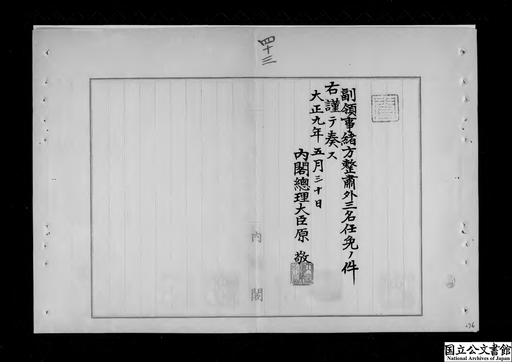 四十三
副領事緒方整肅外三名任免ノ件
右謹テ奏ス
大正九年五月三十日
內閣總理大臣原敬
內閣
国立公文書館
National Archives of Japan